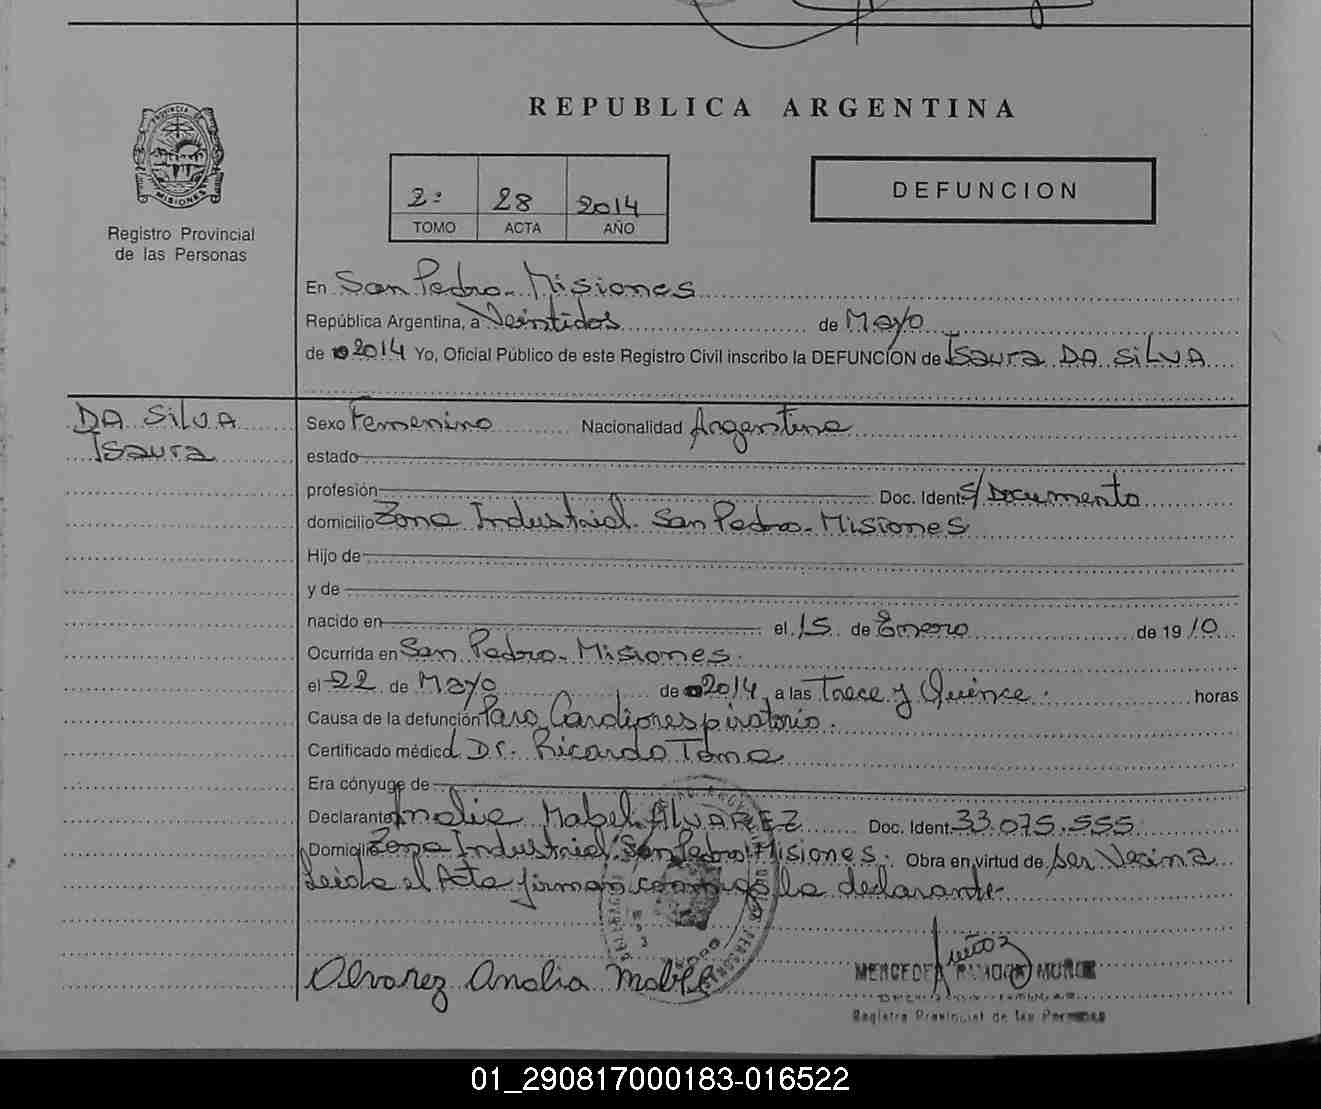 REPUBLICA ARGENTINA
PROVINCIA DE
MISIONES
Registro Provincial
de las Personas
2: 28 2014
TOMO ACTA AÑO
DEFUNCION
En San Pedro - Misiones
República Argentina, a Veintidos de Mayo
de 2014 Yo, Oficial Público de este Registro Civil inscribo la DEFUNCION de Isaura DA SiLVA
DA SiLVA
Isaura
Sexo Femenino Nacionalidad Argentina
estado
profesión Doc. Ident. S/Documento
domicilio Zona Industrial. San Pedro - Misiones
Hijo de
y de
nacido en el 15 de Enero de 1910
Ocurrida en San Pedro - Misiones.
el 22 de Mayo de 2014 a las Trece y Quince. horas
Causa de la defunción Paro Cardiorespiratorio.
Certificado médico Dr. Ricardo Toma
Era cónyuge de
Declarante Analia Mabel ALVAREZ Doc. Ident. 33.075.555
Domicilio Zona Industrial San Pedro Misiones. Obra en virtud de ser Vecina
Leida el Acta firman conmigo la declarante.
Alvarez Analia Mabel
Muñoz
MERCEDES RAMONA MUÑOZ
Registro Provincial de las Personas
01_290817000183-016522